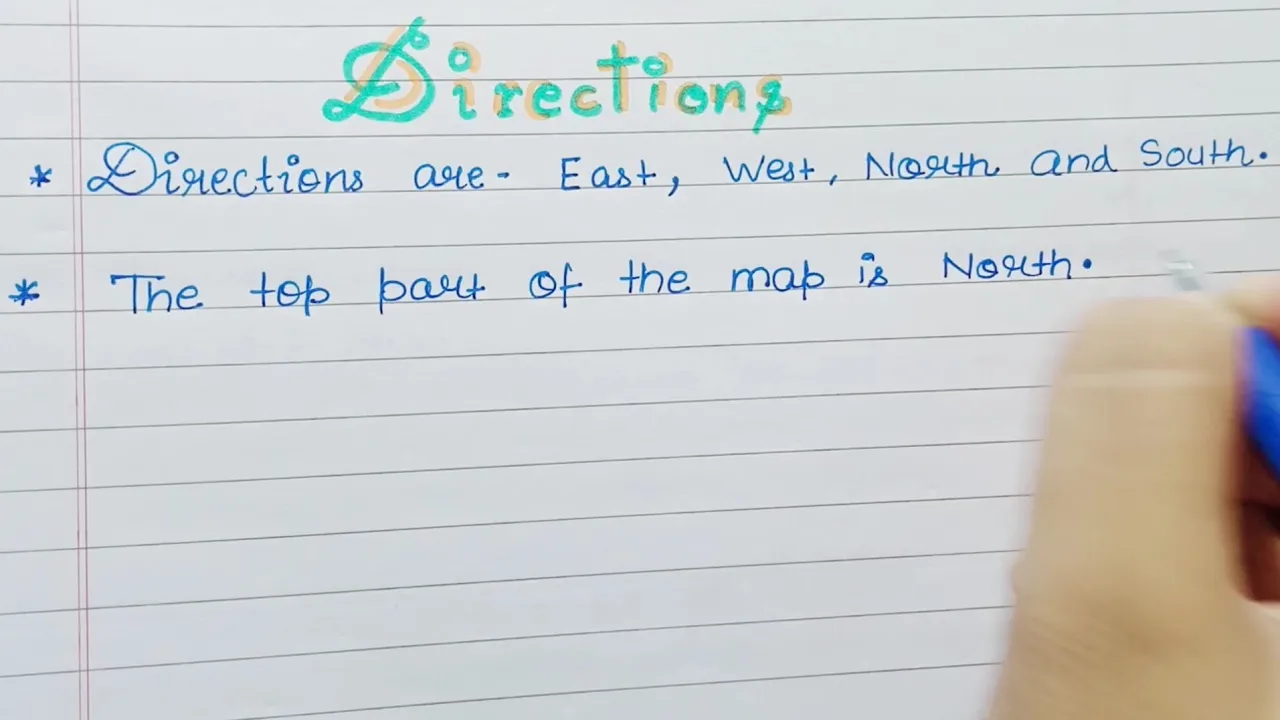 Directions
* Directions are- East, West, North and South.
* The top part of the map is North.